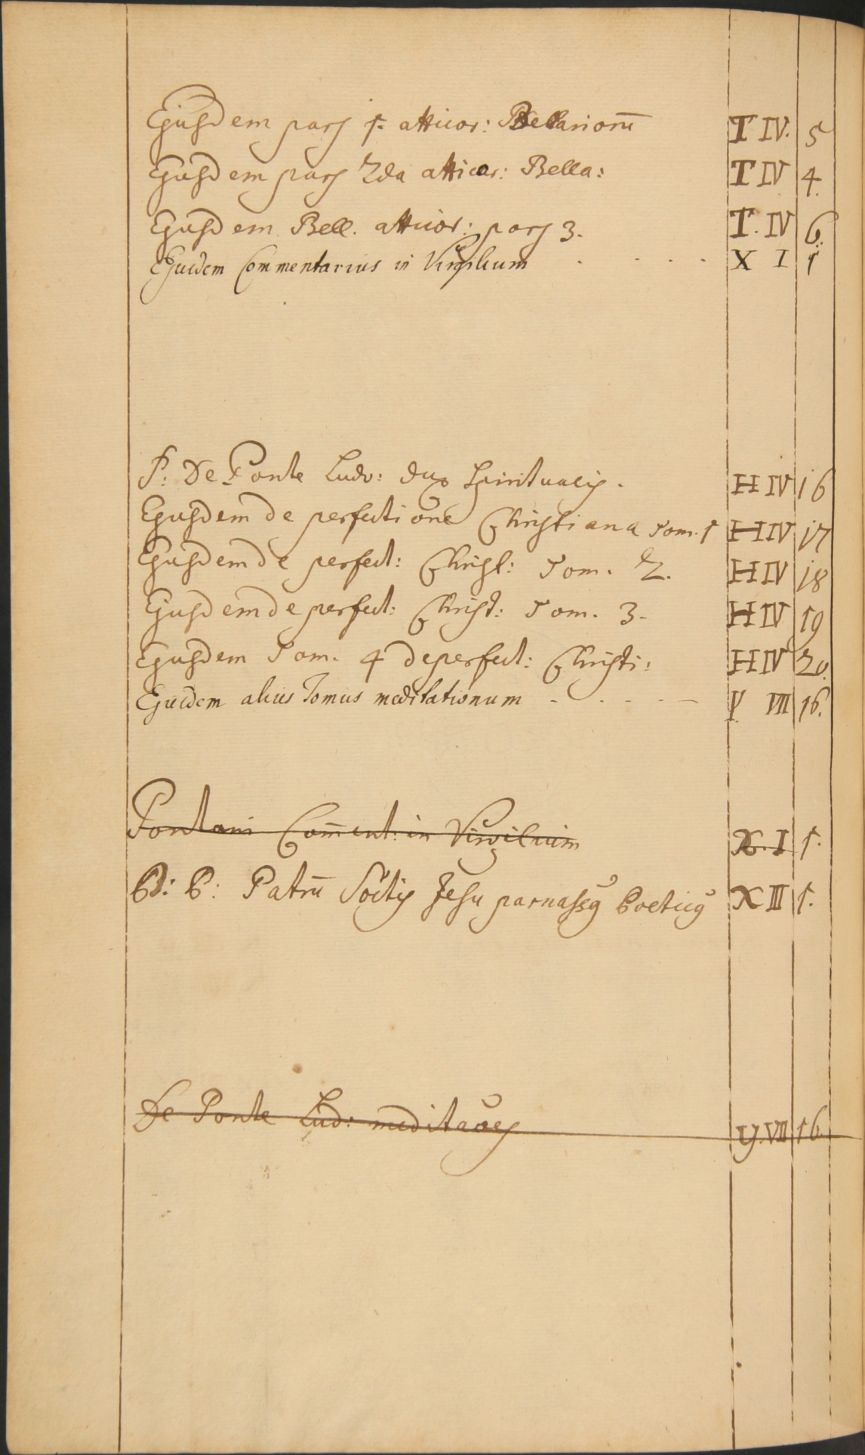 Ejusdem pars 1. atticor: Bellariorū T IV. 5
Ejusdem pars 2da atticor: Bella: T IV 4
Ejusdem Bell. atticor: pars 3. T. IV 6.
Ejusdem Commentarius in Virgilium X I 1
P: De Ponte Ludv: dux Spiritualis. H IV 16
Ejusdem de perfectione Christiana Tom. 1 H IV 17
Ejusdem de perfect: Christ: Tom. 2. H IV 18
Ejusdem de perfect: Christ: Tom. 3. H IV 19
Ejusdem Tom. 4 de perfect: Christi: H IV 20.
Ejusdem alius Tomus meditationum V VII 16.
Pontani Com̄ent: in Virgilium X. I 1.
P: P: Patrū Soc̄tis Jesu parnassus Poeticus X II 1.
De Ponte Lud: meditāoēs Y. VII 16.